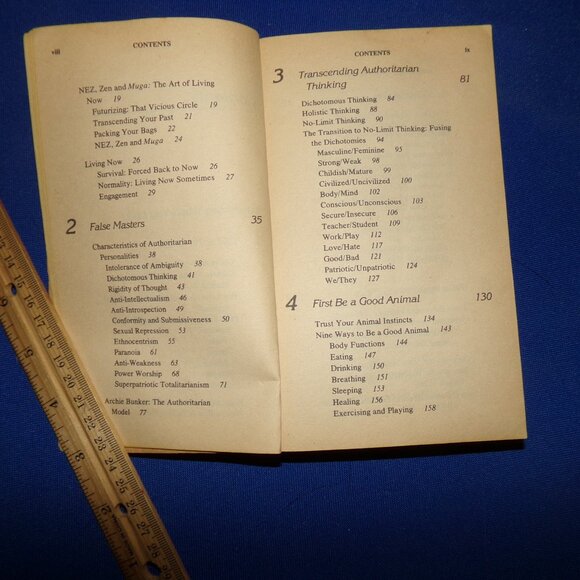 viii
CONTENTS
NEZ, Zen and Muga: The Art of Living
Now 19
Futurizing: That Vicious Circle 19
Transcending Your Past 21
Packing Your Bags 22
NEZ, Zen and Muga 24
Living Now 26
Survival: Forced Back to Now 26
Normality: Living Now Sometimes 27
Engagement 29
2 False Masters 35
Characteristics of Authoritarian
Personalities 38
Intolerance of Ambiguity 38
Dichotomous Thinking 41
Rigidity of Thought 43
Anti-Intellectualism 46
Anti-Introspection 49
Conformity and Submissiveness 50
Sexual Repression 53
Ethnocentrism 55
Paranoia 61
Anti-Weakness 63
Power Worship 68
Superpatriotic Totalitarianism 71
Archie Bunker: The Authoritarian
Model 77
CONTENTS
ix
3 Transcending Authoritarian
Thinking 81
Dichotomous Thinking 84
Holistic Thinking 88
No-Limit Thinking 90
The Transition to No-Limit Thinking: Fusing
the Dichotomies 94
Masculine/Feminine 95
Strong/Weak 98
Childish/Mature 99
Civilized/Uncivilized 100
Body/Mind 102
Conscious/Unconscious 103
Secure/Insecure 106
Teacher/Student 109
Work/Play 112
Love/Hate 117
Good/Bad 121
Patriotic/Unpatriotic 124
We/They 127
4 First Be a Good Animal 130
Trust Your Animal Instincts 134
Nine Ways to Be a Good Animal 143
Body Functions 144
Eating 147
Drinking 150
Breathing 151
Sleeping 153
Healing 156
Exercising and Playing 158